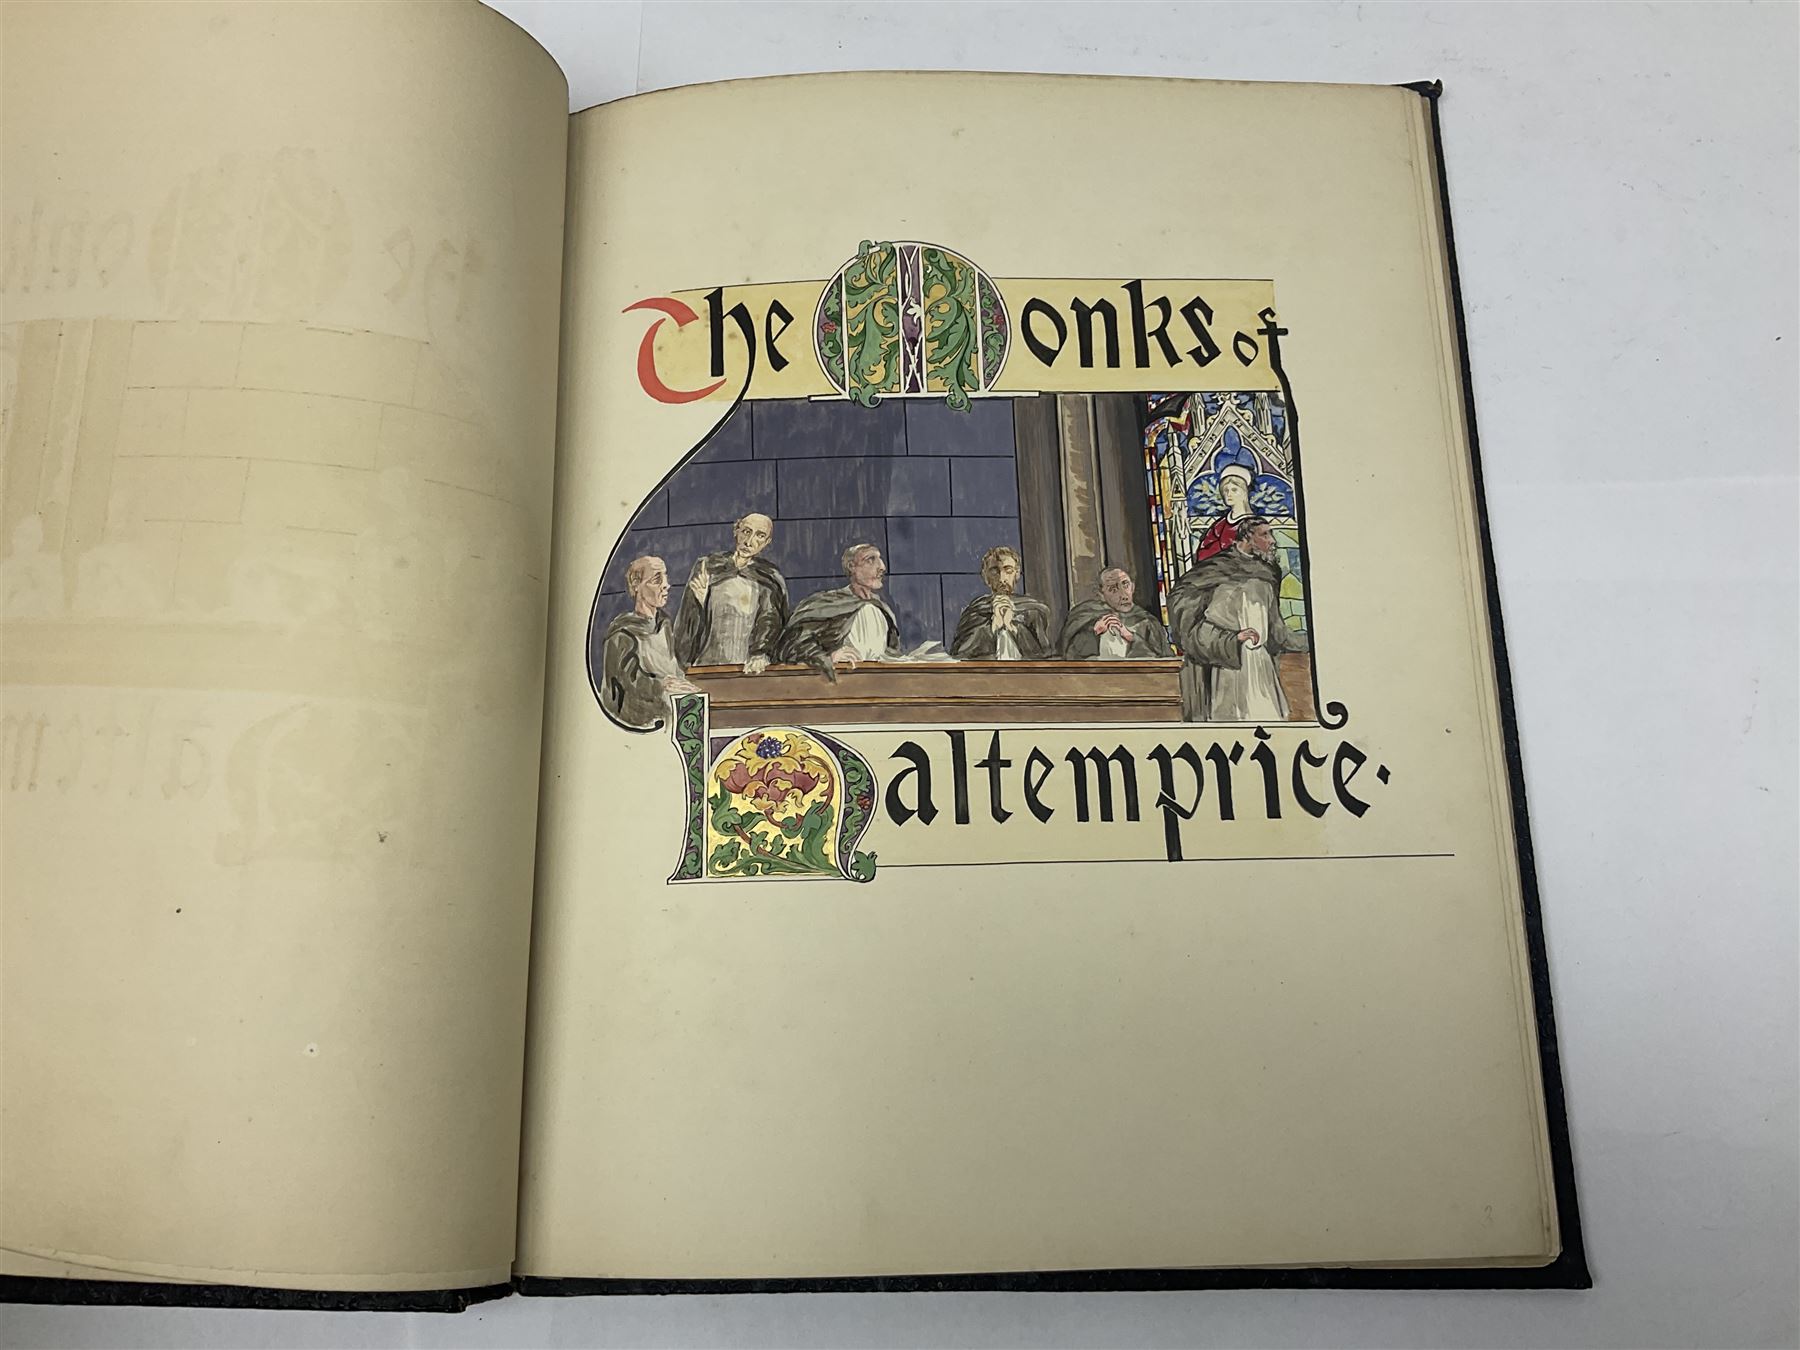 The Monks of
Haltemprice.
3